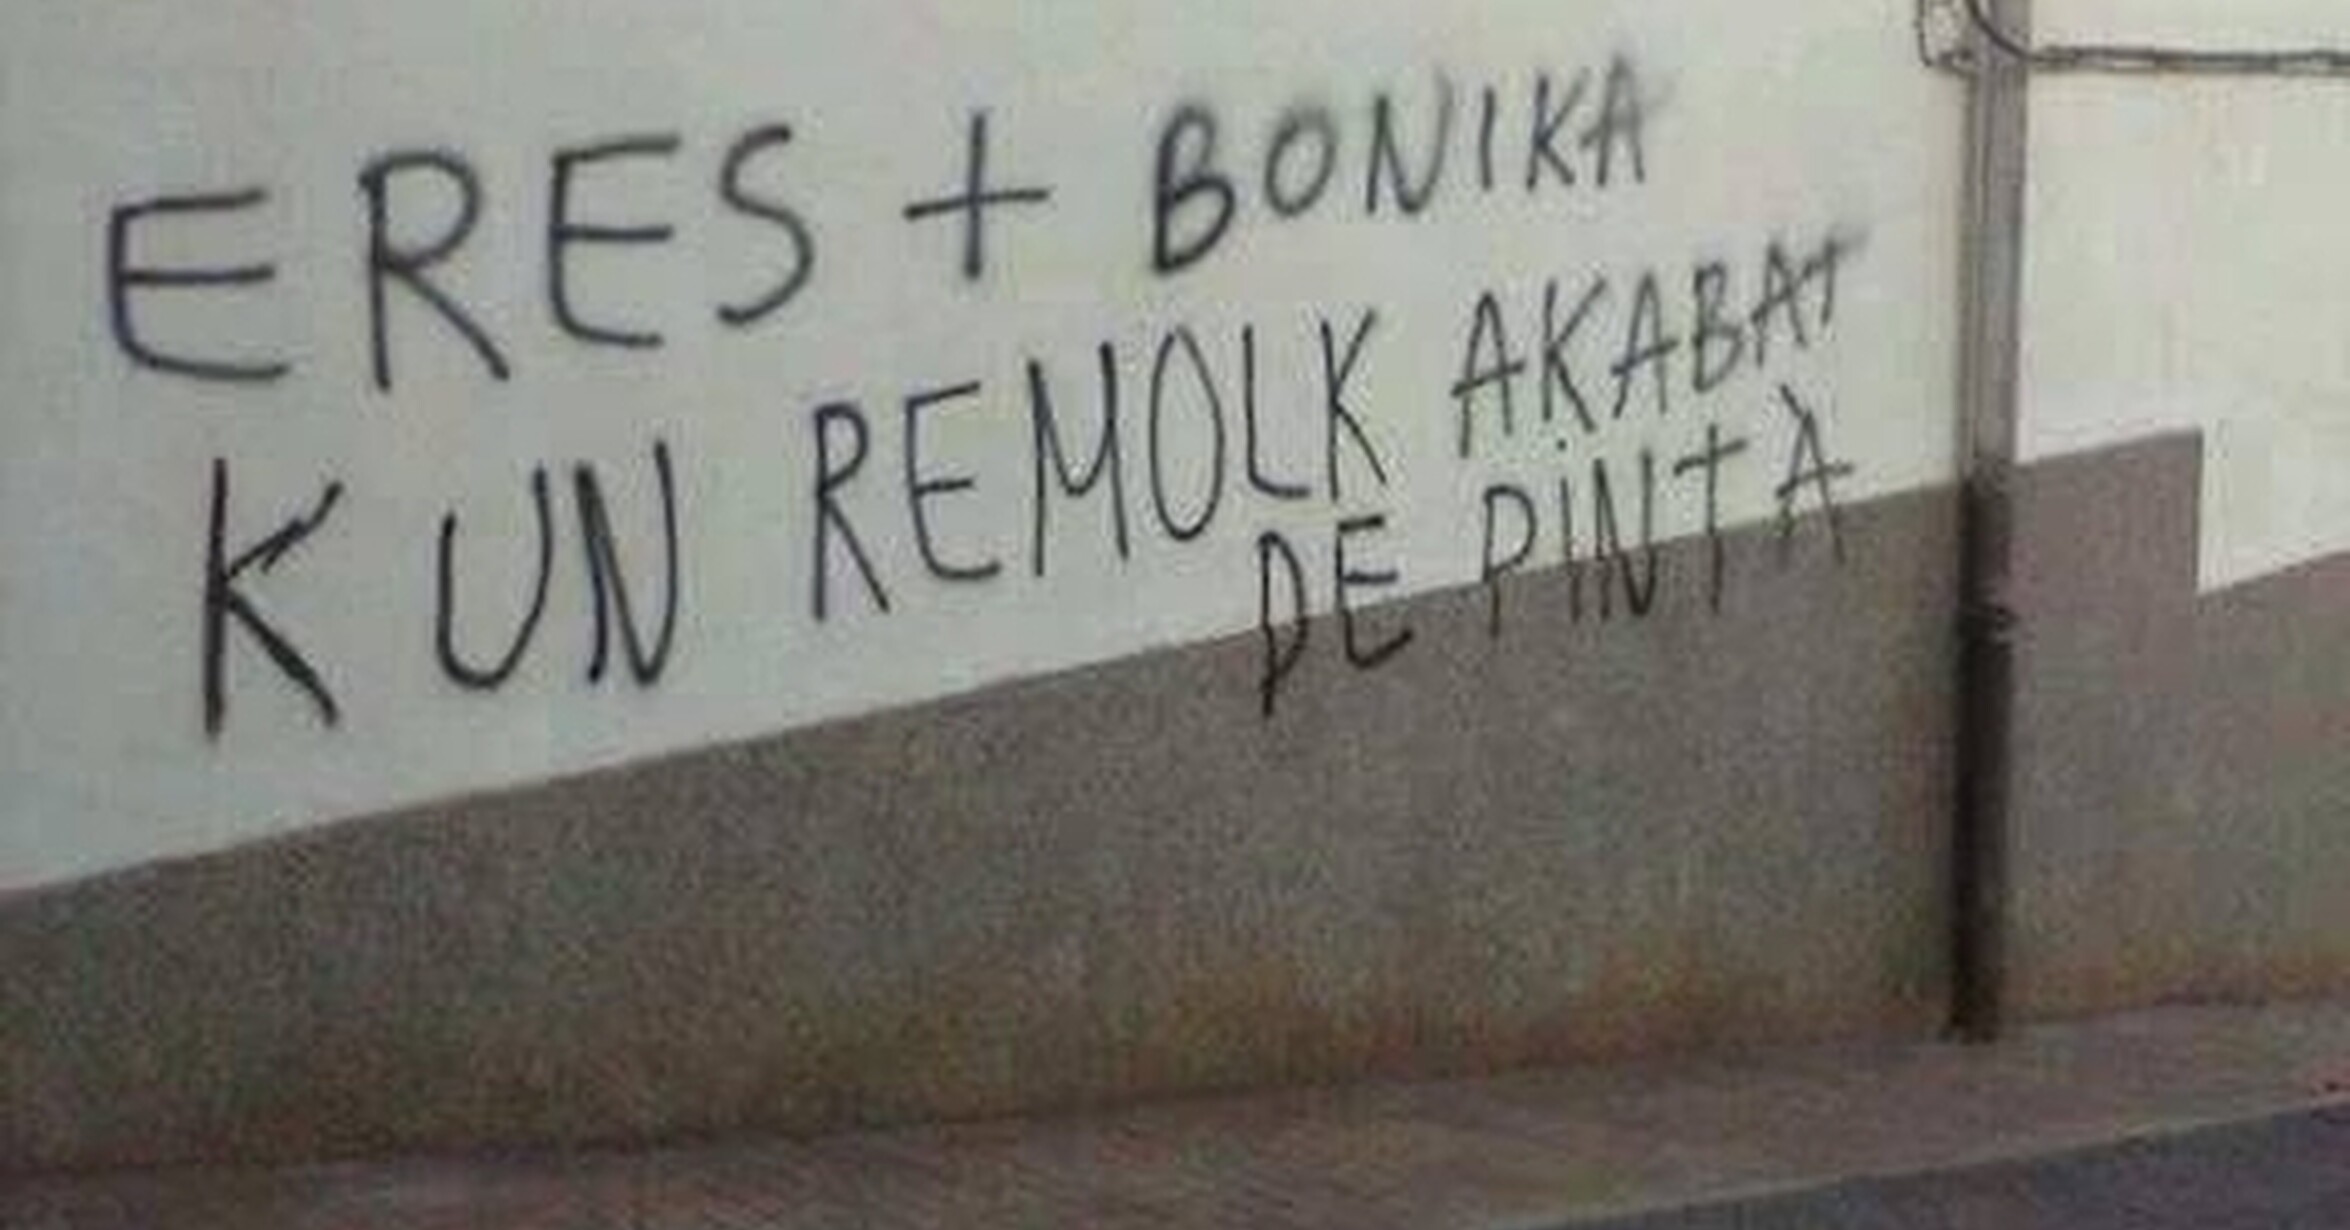 ERES + BONIKA
KUN REMOLK AKABAT
DE PINTA